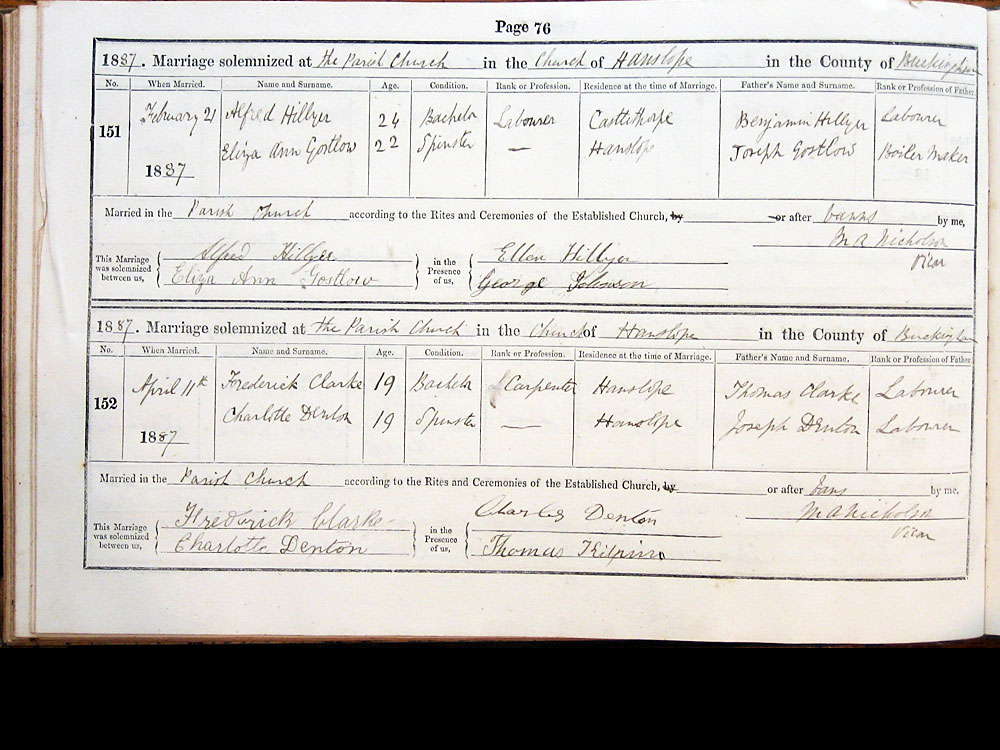 Page 76
1887. Marriage solemnized at the Parish Church in the Church of Hanslope in the County of Buckingham
No. When Married. Name and Surname. Age. Condition. Rank or Profession. Residence at the time of Marriage. Father's Name and Surname. Rank or Profession of Father.
151 February 21 Alfred Hillyer 24 Bachelor Labourer Castlethorpe Benjamin Hillyer Labourer
Eliza Ann Gostlow 22 Spinster — Hanslope Joseph Gostlow Boiler Maker
1887
Married in the Parish Church according to the Rites and Ceremonies of the Established Church, by or after banns by me,
M A Nicholson
Vicar
This Marriage was solemnized between us, Alfred Hillyer in the Presence of us, Ellen Hillyer
Eliza Ann Gostlow George Johnson
1887. Marriage solemnized at the Parish Church in the Church of Hanslope in the County of Buckingham
No. When Married. Name and Surname. Age. Condition. Rank or Profession. Residence at the time of Marriage. Father's Name and Surname. Rank or Profession of Father
152 April 11th Frederick Clarke 19 Bachelor Carpenter Hanslope Thomas Clarke Labourer
Charlotte Denton 19 Spinster — Hanslope Joseph Denton Labourer
1887
Married in the Parish Church according to the Rites and Ceremonies of the Established Church, by or after bans by me.
M A Nicholson
Vicar
This Marriage was solemnized between us, Frederick Clarke in the Presence of us, Charles Denton
Charlotte Denton Thomas Kilpin